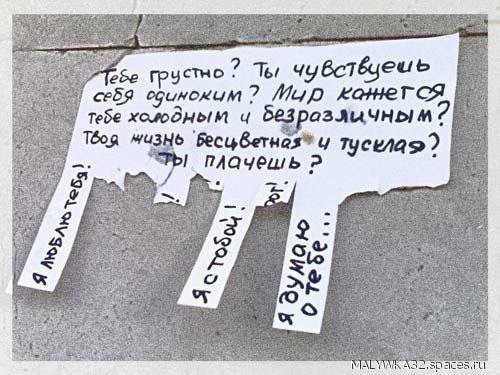 Тебе грустно? Ты чувствуешь
себя одиноким? Мир кажется
тебе холодным и безразличным?
Твоя жизнь бесцветная и тусклая?
Ты плачешь?
Я люблю тебя!
Я с тобой!
Я думаю
о тебе...
MALYWKA32.spaces.ru